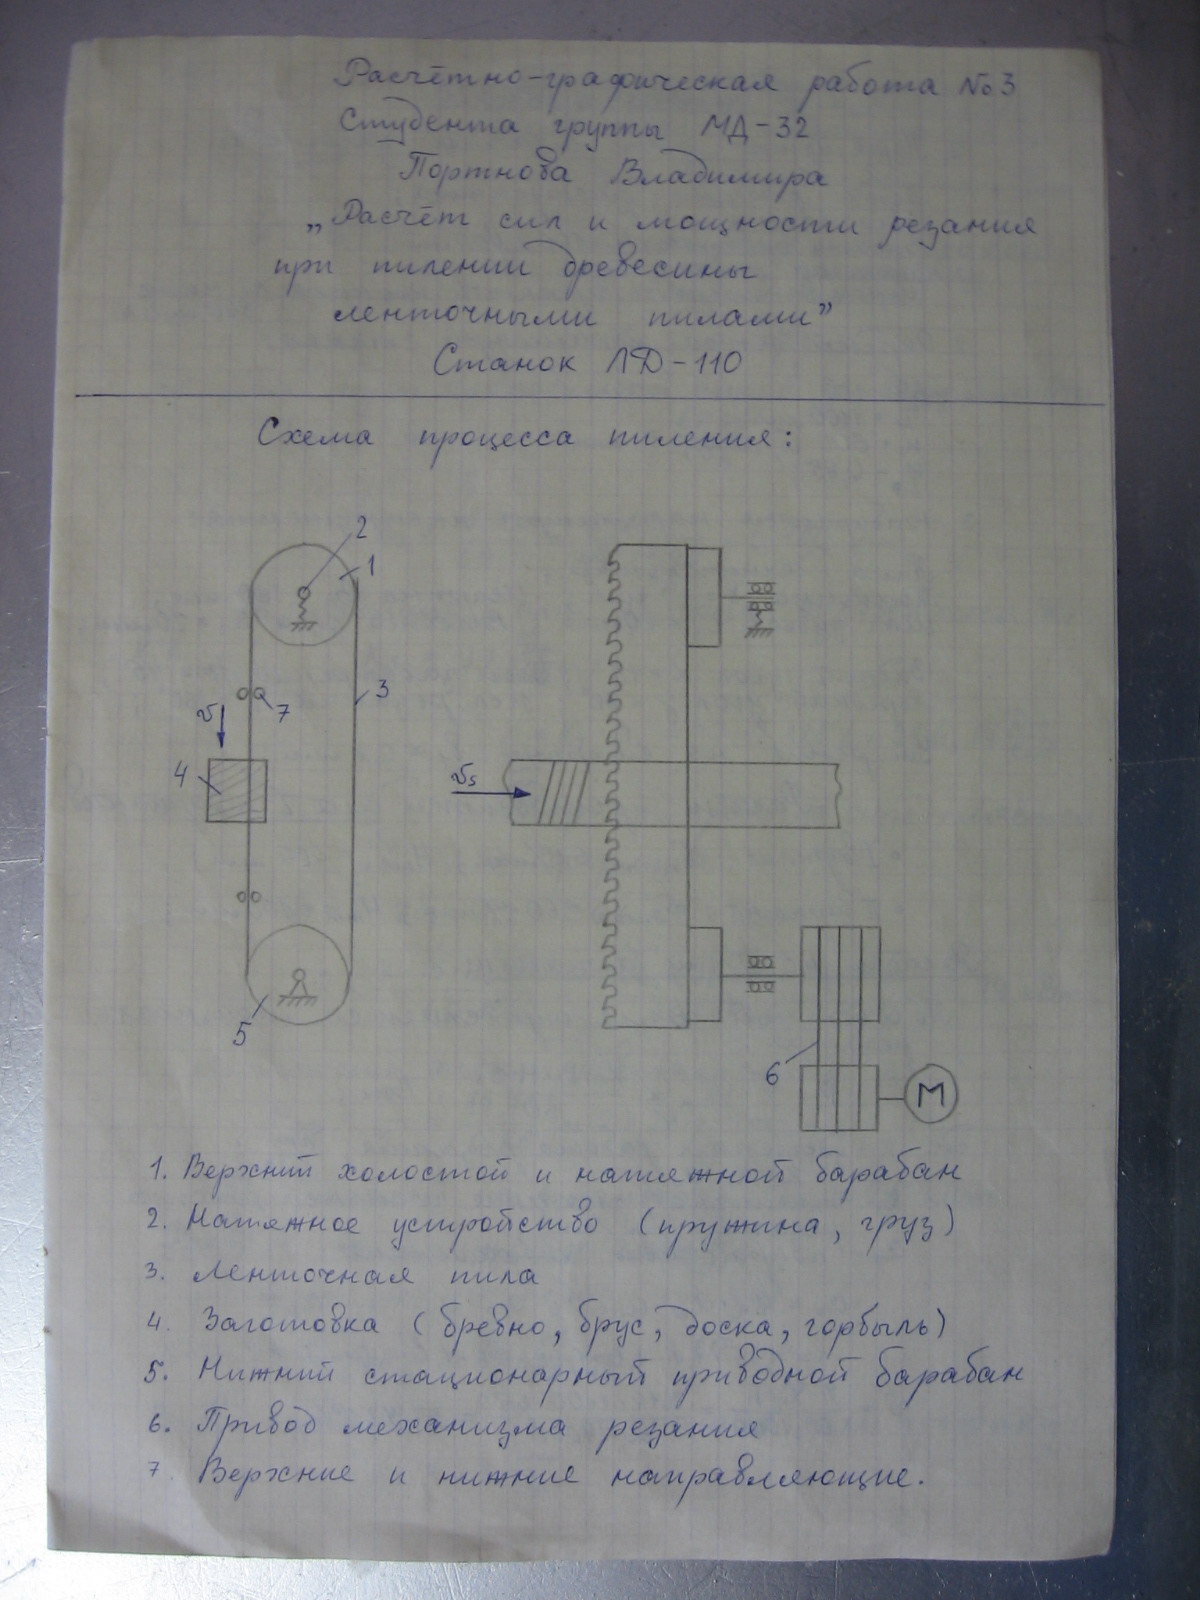 Расчётно-графическая работа №3
Студента группы МД-32
Портнова Владимира
„Расчёт сил и мощности резания
при пилении древесины
ленточными пилами”
Станок ЛД-110
Схема процесса пиления:
2
1
3
7
v
4
vs
5
6
М
1. Верхний холостой и натяжной барабан
2. Натяжное устройство (пружина, груз)
3. Ленточная пила
4. Заготовка (бревно, брус, доска, горбыль)
5. Нижний стационарный приводной барабан
6. Привод механизма резания
7. Верхние и нижние направляющие.